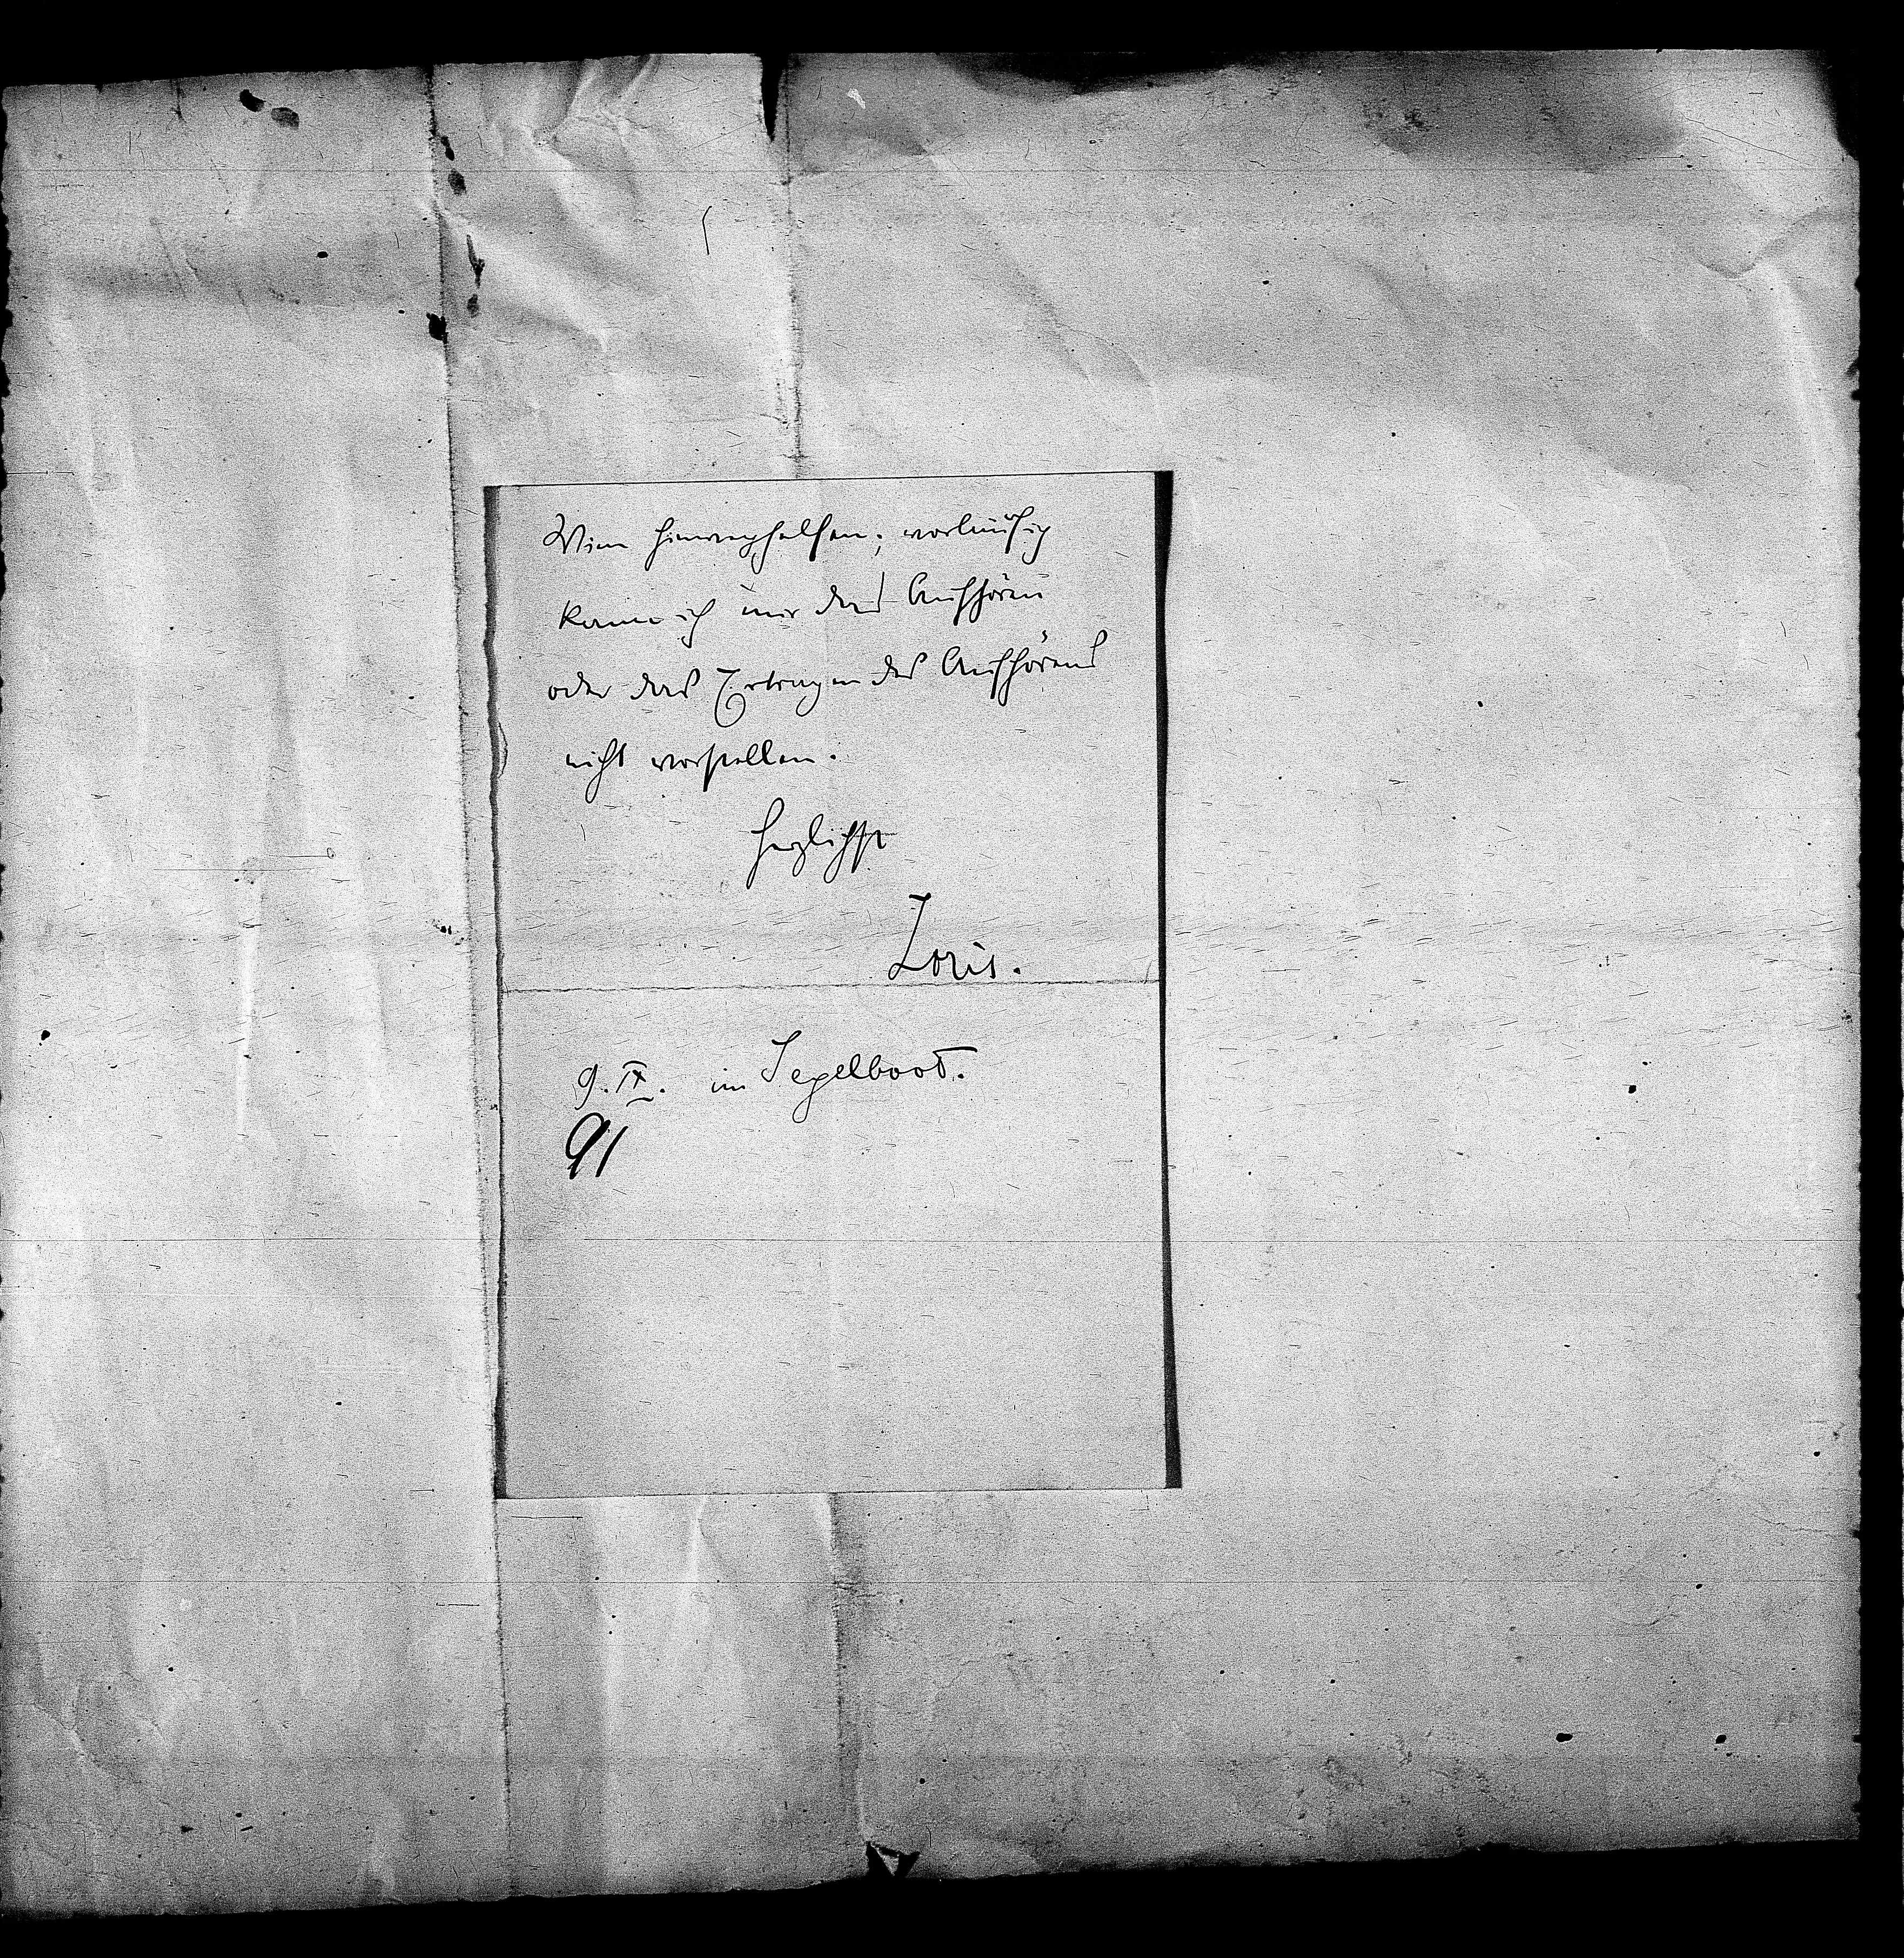 Wien hinweghelfen; vorläufig
kann ich mir das Aufhören
oder das Ertragen des Aufhörens
nicht vorstellen.
Herzlichst
Loris.
9. IX. im Segelboot.
91